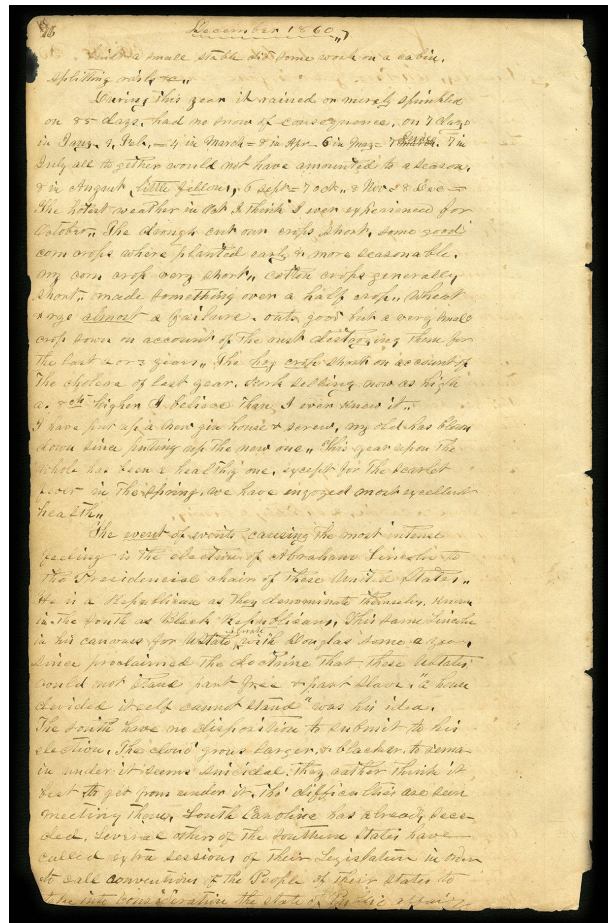 December 1860,,
built a small stable did some work on a cabin,
splitting rails &c,,
During this year it rained or merely sprinkled
on 85 days. had no snow of consequence, on 7 days
in Jany. 9, Feb, = 4 in March = 8 in Apr = 6 in May = 7 in
July all to gether would not have amounted to a season,
8 in August, little fellows, 6 Sept = 7 oct,, 8 Nov & 8 Dec =
The hotest weather in Oct I think I ever experienced for
October,, The drougth cut our crops short, some good
corn crops where planted early & more seasonable.
my corn crop very short,, cotton crops generally
short,, made something over a half crop,, Wheat
& rye almost a failure. oats good but a very small
crop sown on account of the rust destroying them for
the last 2 or 3 years,, The hog crop short on account of
the cholera of last year, Pork selling now as high
a. 8 cts higher I believe than I ever knew it,,
I have put up a new gin house & screw, my old has blown
down since putting up the new one,, This year upon the
whole has been a healthy one, except for the scarlet
fever in the Spring, we have enjoyed most excellent
health,,
The event of events causing the most intense
feeling is the election of Abraham Lincoln to
the Presidencial chair of these United States,,
He is a Republican as they denominate themselves, known
in the South as Black Republicans, This same Lincoln
in his canvass for U State Senate with Douglas some 2 yrs.
since proclaimed the doctrine that these U States
could not stand part free & part slave. "a house
devided itself cannot stand" was his idea.
The South have no disposition to submit to his
election. The cloud grows larger, & blacker, to remai
in under it seems suicidal: they rather think it
best to get from under it. Tho' difficulties are seen
meeting them. South Carolina has already sece-
ded, Several other of the Southern States have
called extra sessions of their Legislature in order
to call conventions of the People of their States to
take into consideration the state of Public affairs